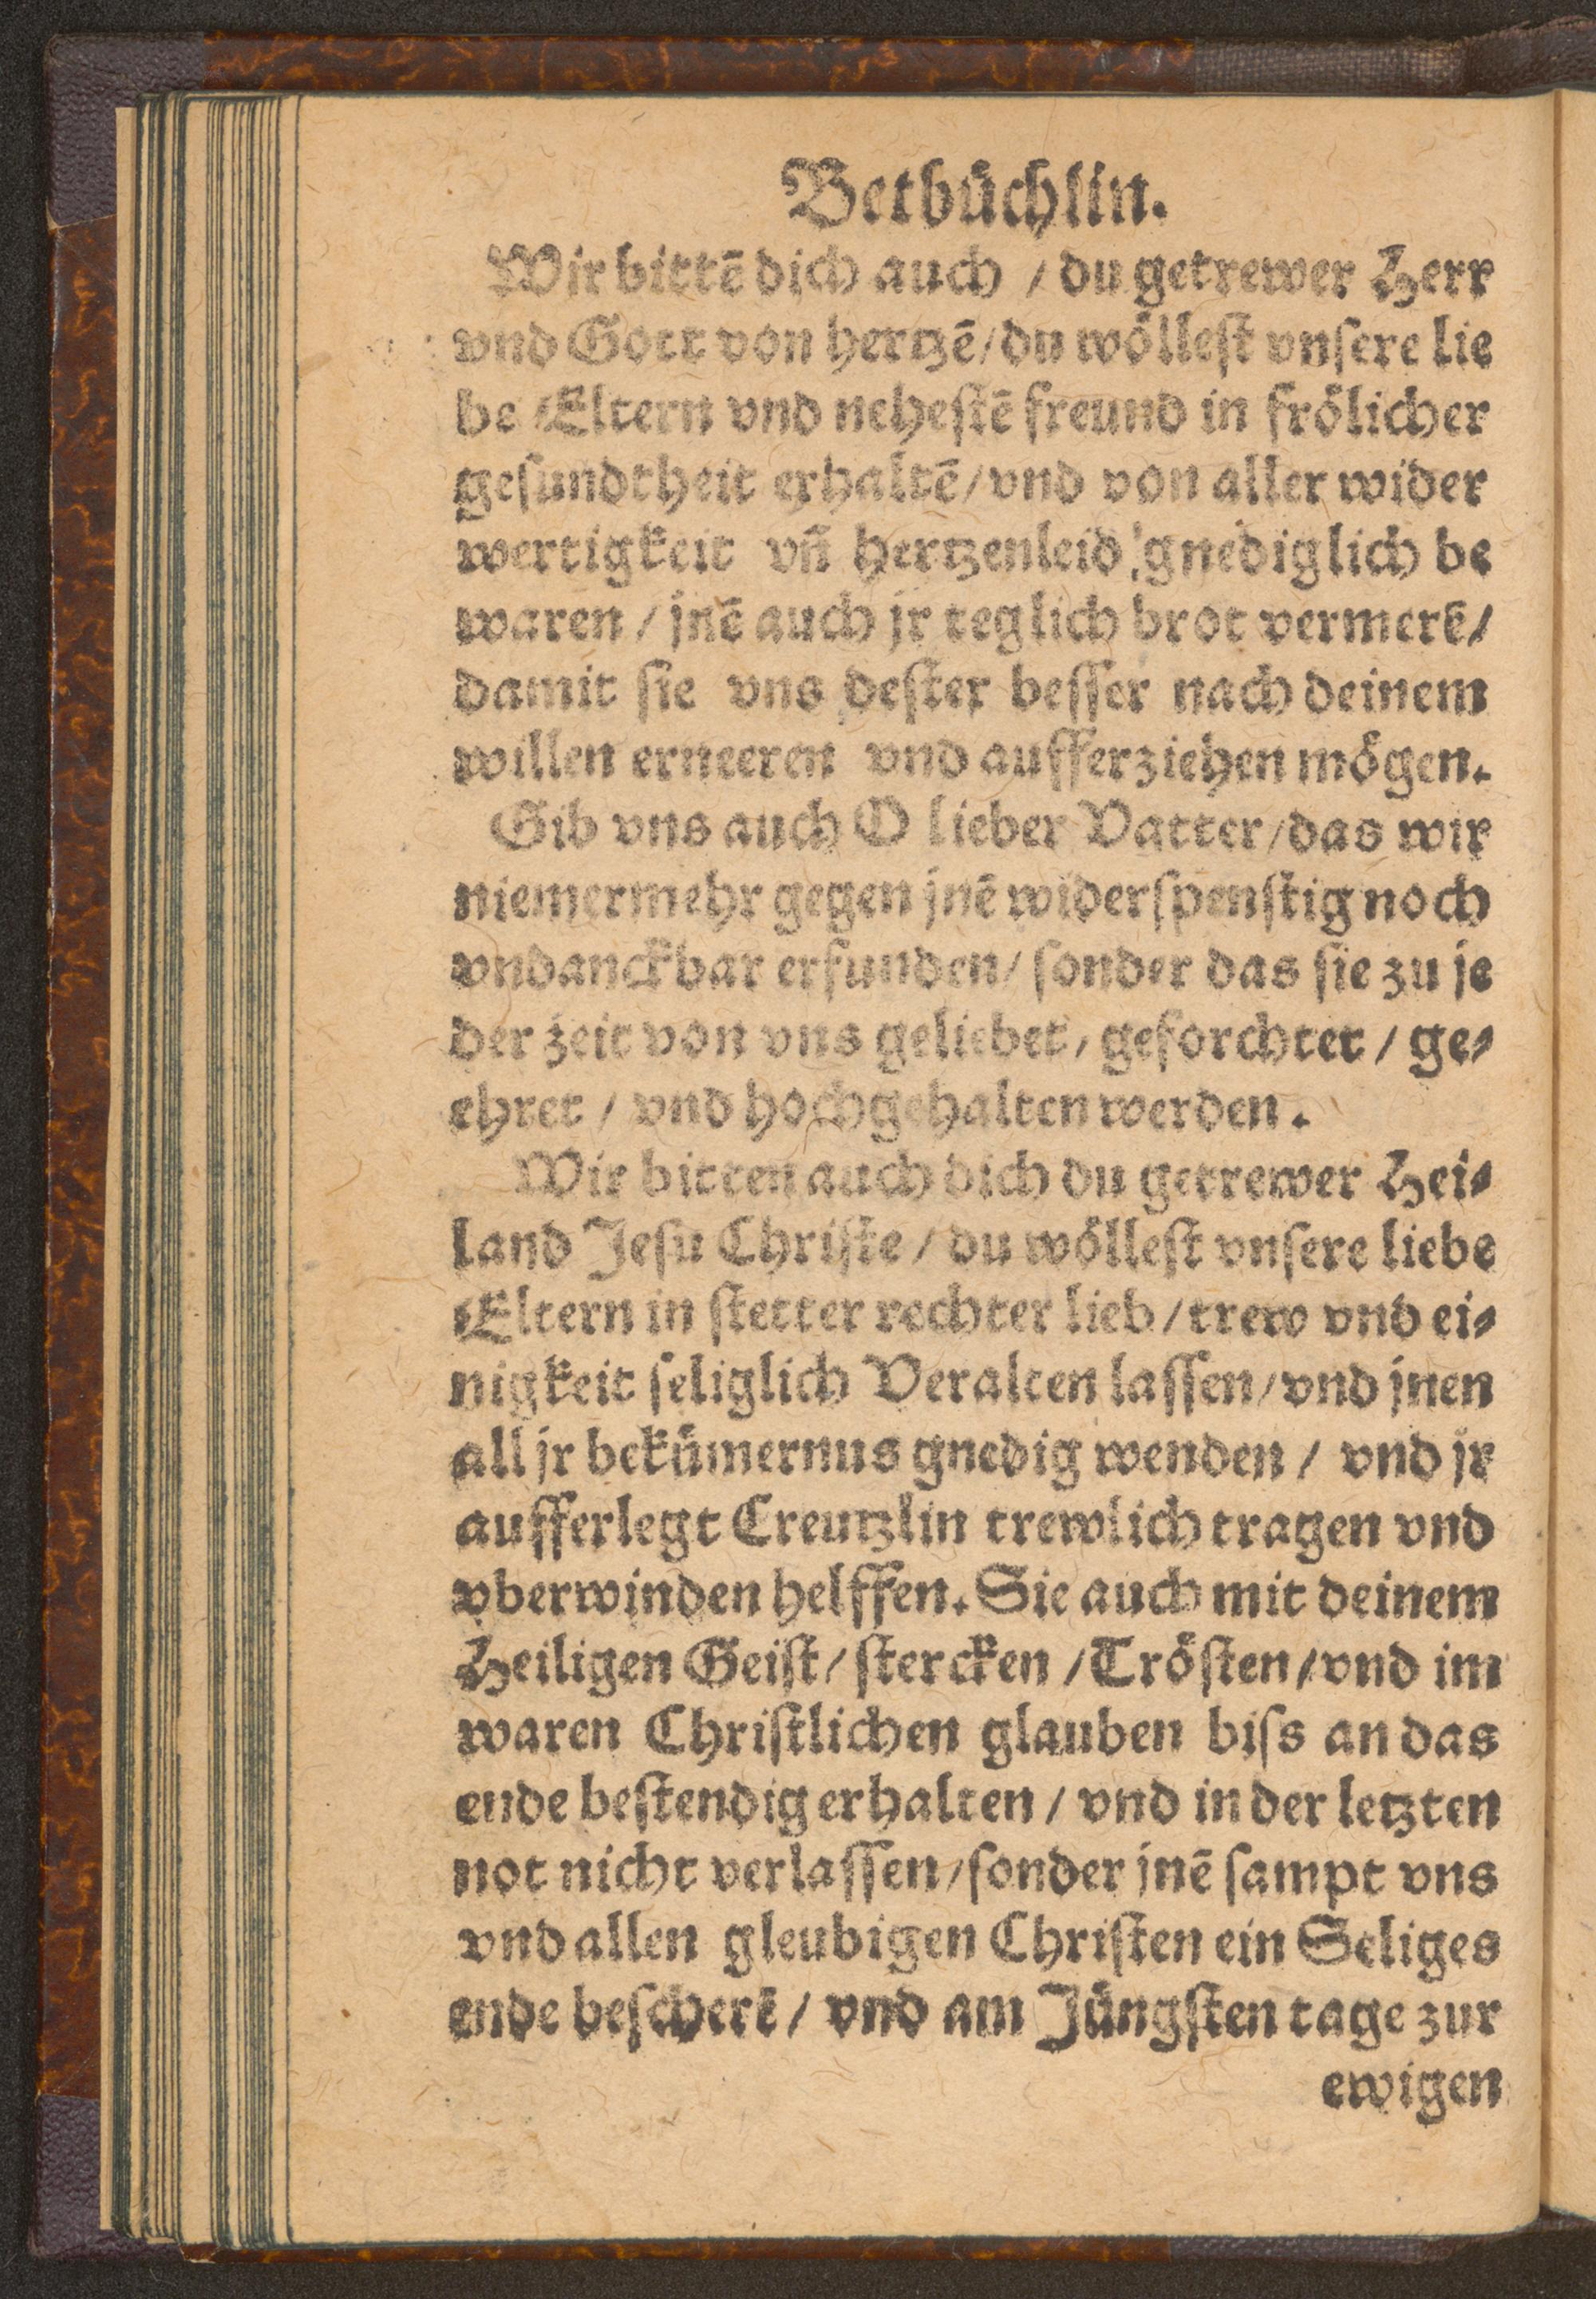 Betbüchlin.
Wir bittē dich auch / du getrewer Herr
vnd Gott von hertzē / du wöllest vnsere lie
be Eltern vnd nehestē freund in frölicher
gesundtheit erhaltē / vnd von aller wider
wertigkeit vn̄ hertzenleid / gnediglich be
waren / jnē auch jr teglich brot vermerē /
damit sie vns dester besser nach deinem
willen erneeren vnd aufferziehen mögen.
Gib vns auch O lieber Vatter / das wir
niemermehr gegen jnē widerspenstig noch
vndanckbar erfunden / sonder das sie zu je
der zeit von vns geliebet, geforchtet / ge-
ehret / vnd hochgehalten werden.
Wir bitten auch dich du getrewer Hei-
land Jesu Christe / du wöllest vnsere liebe
Eltern in stetter rechter lieb / trew vnd ei-
nigkeit seliglich Veralten lassen / vnd jnen
all jr bekümernus gnedig wenden / vnd jr
aufferlegt Creutzlin trewlich tragen vnd
vberwinden helffen. Sie auch mit deinem
Heiligen Geist / stercken / Trösten / vnd im
waren Christlichen glauben biss an das
ende bestendig erhalten / vnd in der letzten
not nicht verlassen / sonder jnē sampt vns
vnd allen gleubigen Christen ein Seliges
ende bescherē / vnd am Jüngsten tage zur
ewigen